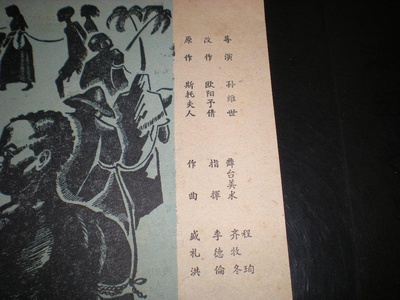 导演 孙维世 舞台美术 程珣 齐牧冬
改作 欧阳予倩 指挥 李德倫
原作 斯托夫人 作曲 盛礼洪